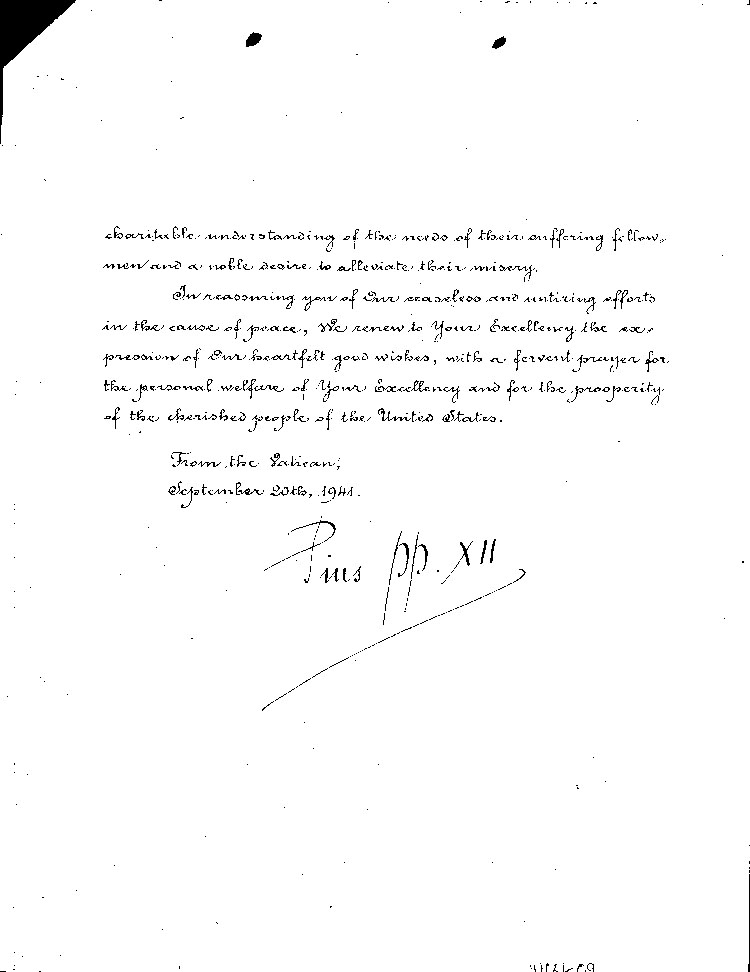 charitable understanding of the needs of their suffering fellow-
men and a noble desire to alleviate their misery.
In reassuring you of Our ceaseless and untiring efforts
in the cause of peace, We renew to Your Excellency the ex-
pression of Our heartfelt good wishes, with a fervent prayer for
the personal welfare of Your Excellency and for the prosperity
of the cherished people of the United States.
From the Vatican,
September 20th, 1941.
Pius pp. XII